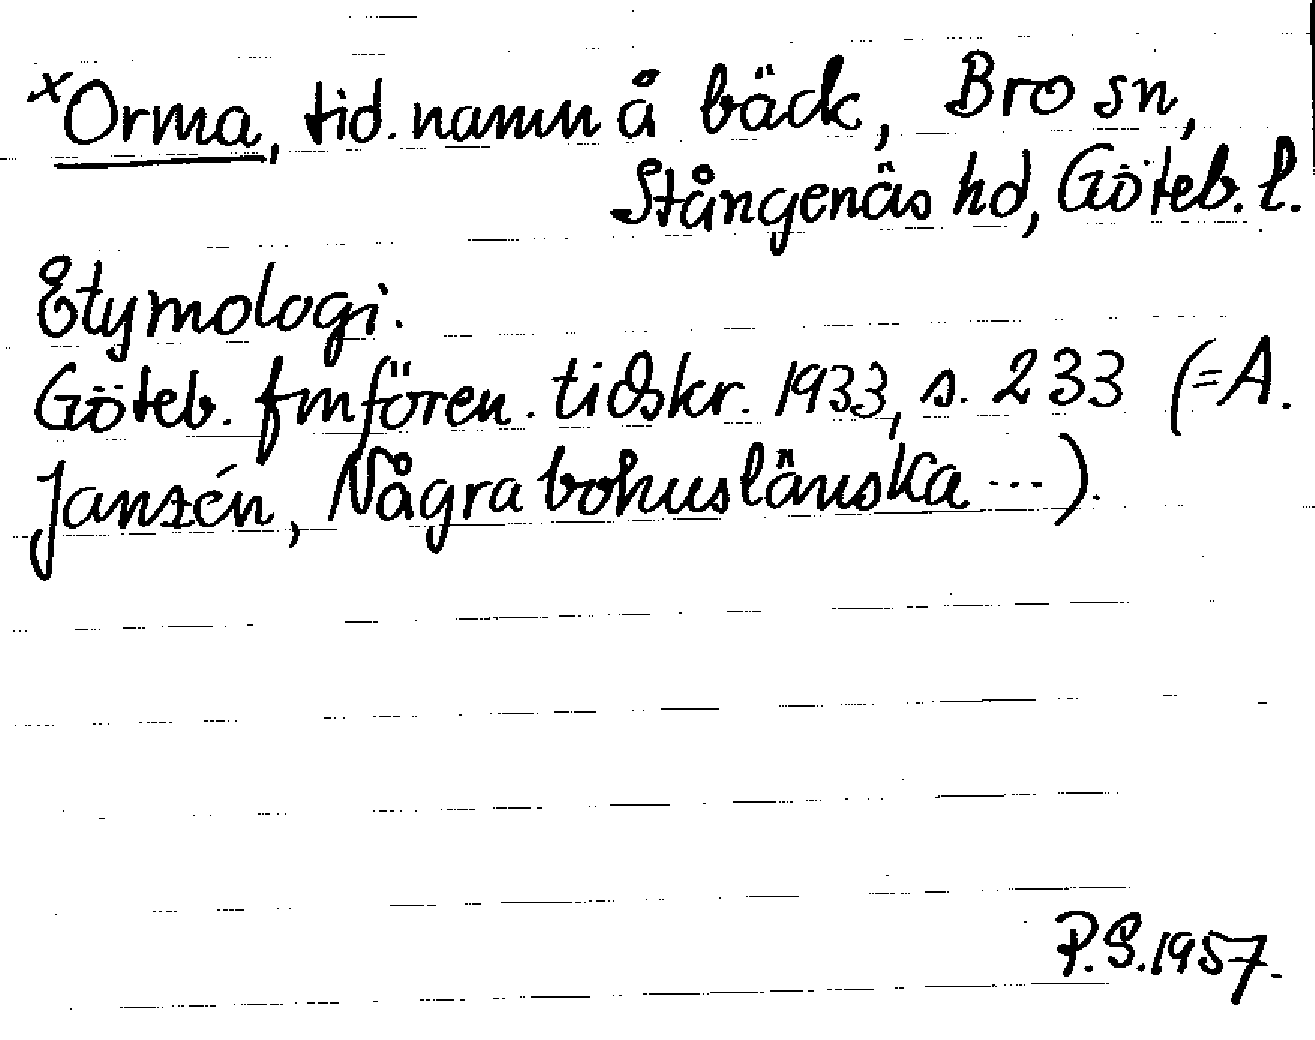 xOrma, tid. namn å bäck, Bro sn,
Stångenäs hd, Göteb. l.
Etymologi.
Göteb. fmfören. tidskr. 1933, s. 233 (=A.
Janzén, Några bohuslänska ...).
P.S. 1957.